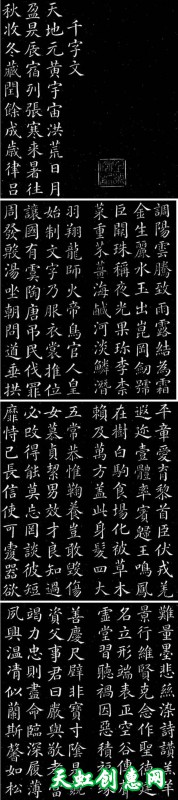 千字文
天地元黃宇宙洪荒日月
盈昃辰宿列張寒來暑往
秋收冬藏閏餘成歲律呂
調陽雲騰致雨露結為霜
金生麗水玉出崑岡劒號
巨闕珠稱夜光果珍李柰
菜重芥薑海鹹河淡鱗潛
羽翔龍師火帝鳥官人皇
始制文字乃服衣裳推位
讓國有虞陶唐吊民伐罪
周發殷湯坐朝問道垂拱
平章愛育黎首臣伏戎羌
遐迩壹體率賓歸王鳴鳳
在樹白駒食場化被草木
賴及萬方蓋此身髮四大
五常恭惟鞠養豈敢毀傷
女慕貞絜男效才良知過
必改得能莫忘罔談彼短
靡恃己長信使可覆器欲
難量墨悲絲染詩讚羔羊
景行維賢克念作聖德建
名立形端表正空谷傳聲
虛堂習聽禍因惡積福緣
善慶尺璧非寶寸陰是競
資父事君曰嚴與敬孝當
竭力忠則盡命臨深履薄
夙興溫清似蘭斯馨如松
天虹创意网